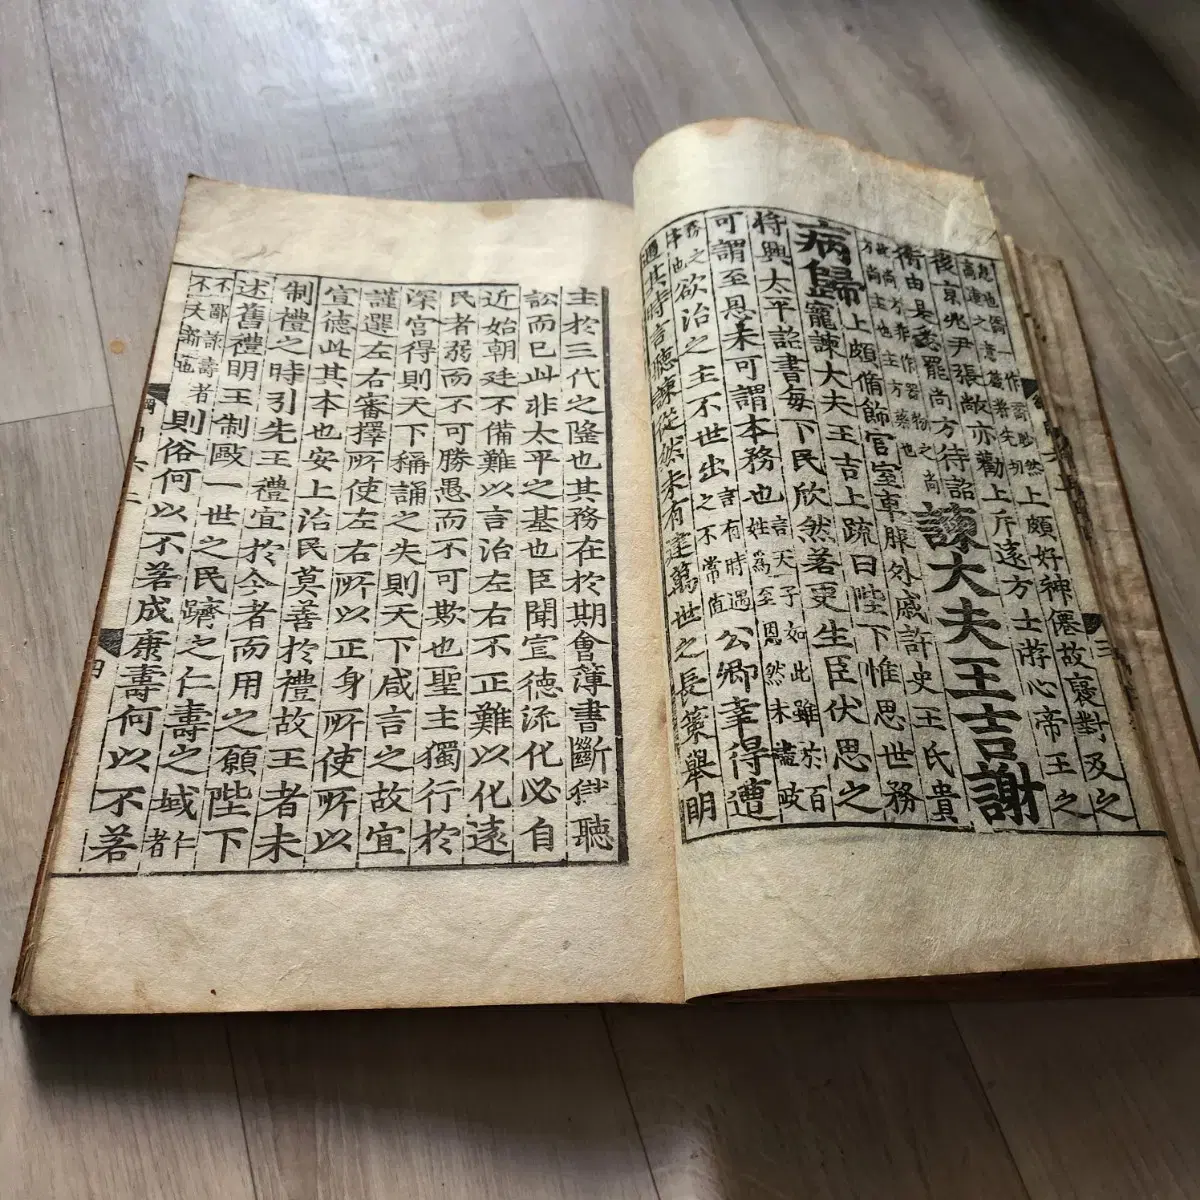 然上頗好神僊故襃對及之
後京兆尹張敞亦勸上斥遠方士游心帝王之
術由是悉罷尚方待詔
諫大夫王吉謝
病歸
上頗脩飾宮室車服外戚許史王氏貴
寵諫大夫王吉上疏曰陛下惟思世務
將興太平詔書每下民欣然若更生臣伏思之
可謂至恩未可謂本務也言天子如此雖於百姓爲至恩然未盡政
務之本也欲治之主不世出言有時遇之不常值公卿幸得遭
遇其時言聽諫從然未有建萬世之長策舉明
主於三代之隆也其務在於期會簿書斷獄聽
訟而已此非太平之基也臣聞宣德流化必自
近始朝廷不備難以言治左右不正難以化遠
民者弱而不可勝愚而不可欺也聖主獨行於
深宮得則天下稱誦之失則天下咸言之故宜
謹選左右審擇所使左右所以正身所使所以
宣德此其本也安上治民莫善於禮故王者未
制禮之時引先王禮宜於今者而用之願陛下
述舊禮明王制敺一世之民躋之仁壽之域仁者
不鄙詠壽者不夭斯也則俗何以不若成康壽何以不若